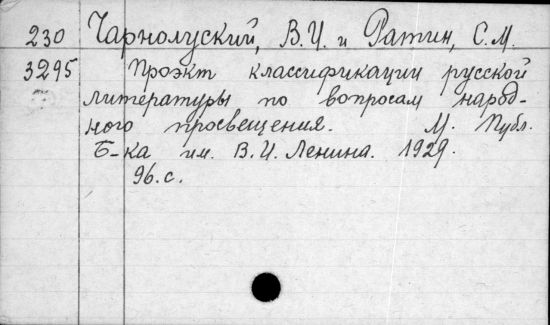 230 Чарнолуский, В.И. и Ратин, С.М.
3295 Проэкт классификации русской
литературы по вопросам народ-
ного просвещения. М. Публ.
Б-ка им. В.И. Ленина. 1929.
96.с.